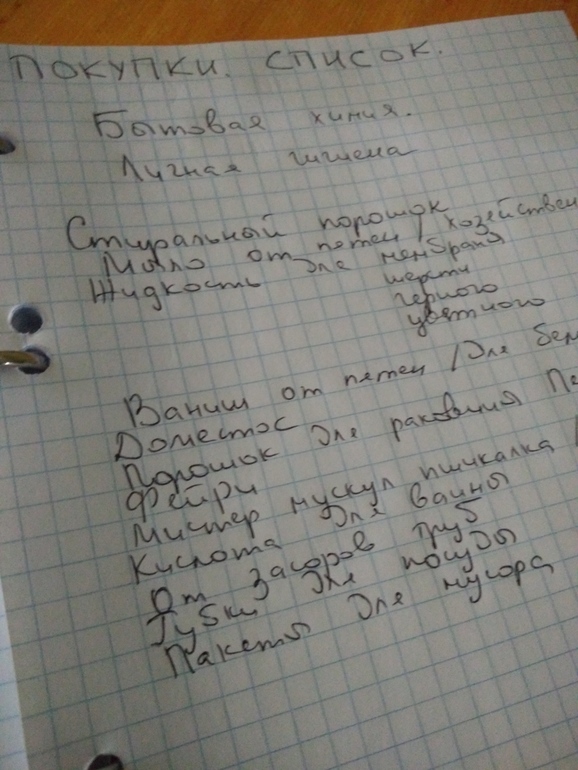 ПОКУПКИ. СПИСОК.
Бытовая химия.
Личная гигиена
Стиральный порошок
Мыло от пятен / хозяйствен
Жидкость для мембраны
шерсти
черного
цветного
Ваниш от пятен / для бел
Доместос
Порошок для раковины Пе
Фейри
Мистер мускул пшикалка /
Кислота для ванны
От засоров труб
Губки для посуды
Пакеты для мусора